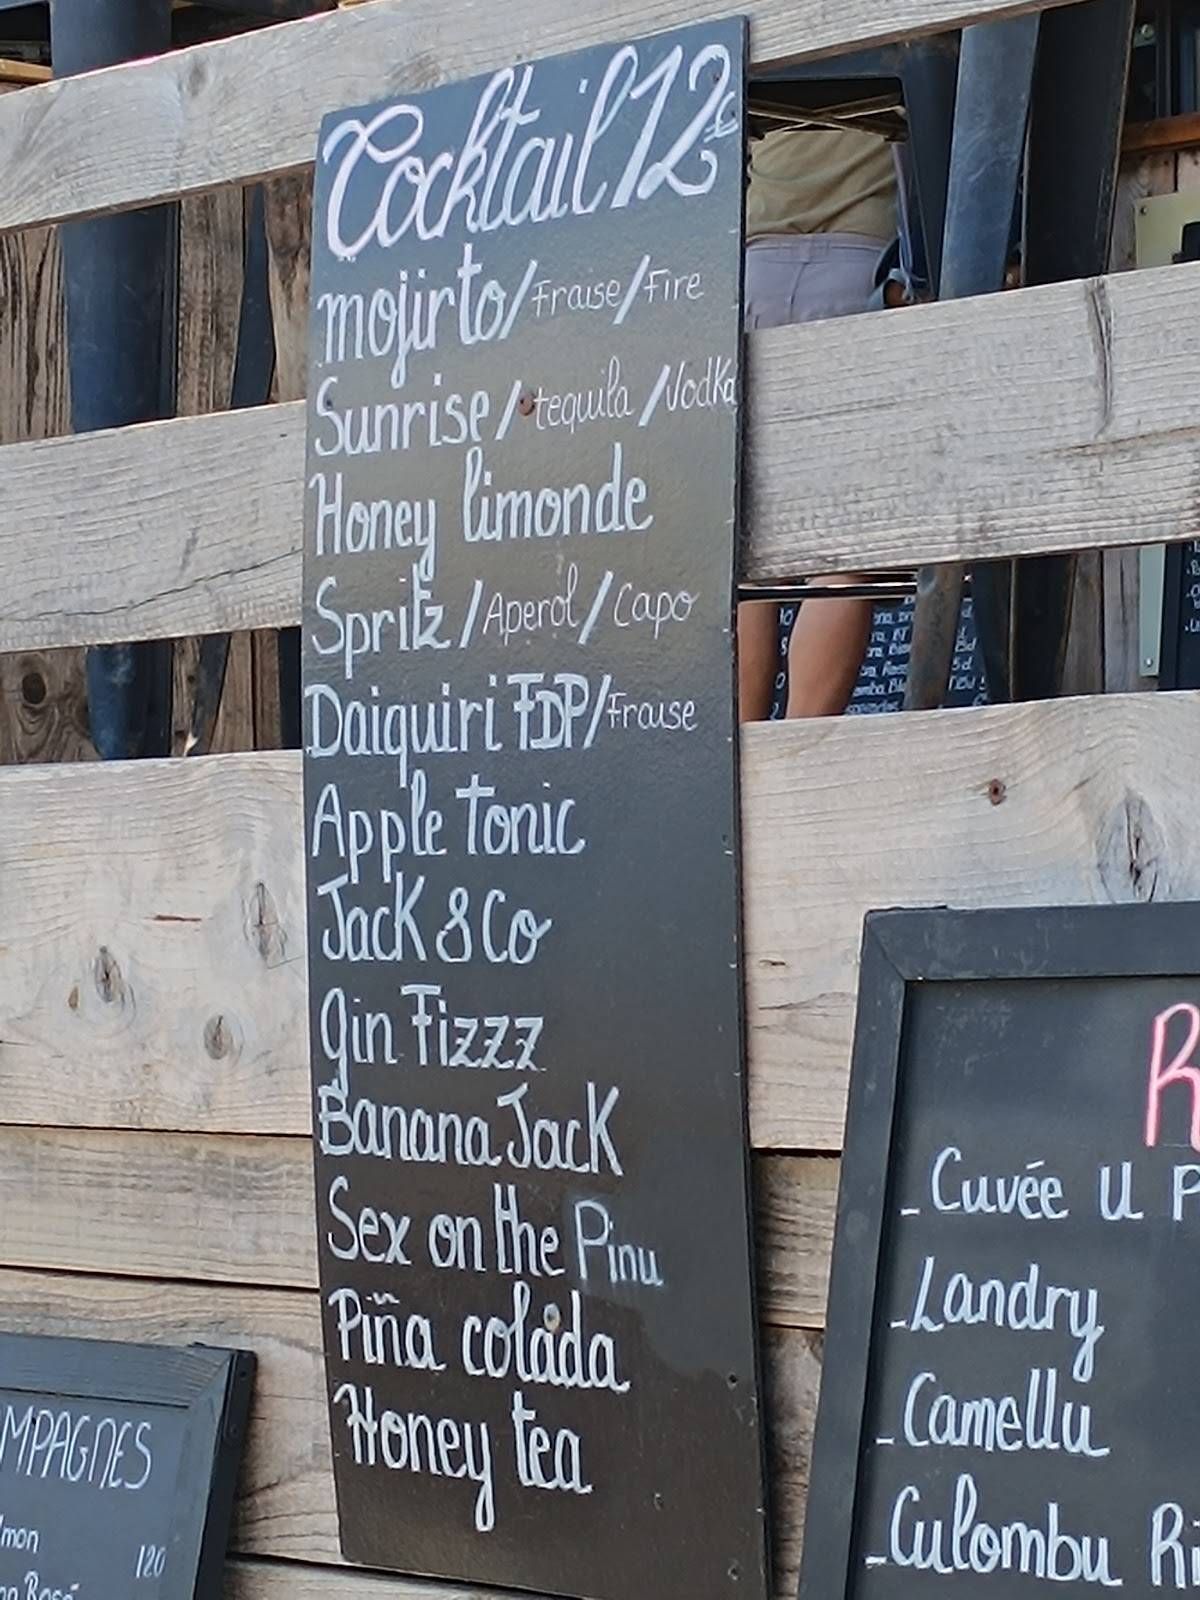 Cocktail 12€
mojirto/Fraise/Fire
Sunrise/tequila/Vodka
Honey limonde
Spritz/Aperol/Capo
Daiquiri FDP/Fraise
Apple tonic
Jack & Co
Gin Fizzz
Banana Jack
Sex on the Pinu
Piña colada
Honey tea
MPAGNES
120
Rosé
R
_ Cuvée U P
_ Landry
_ Camellu
_ Culombu Ri